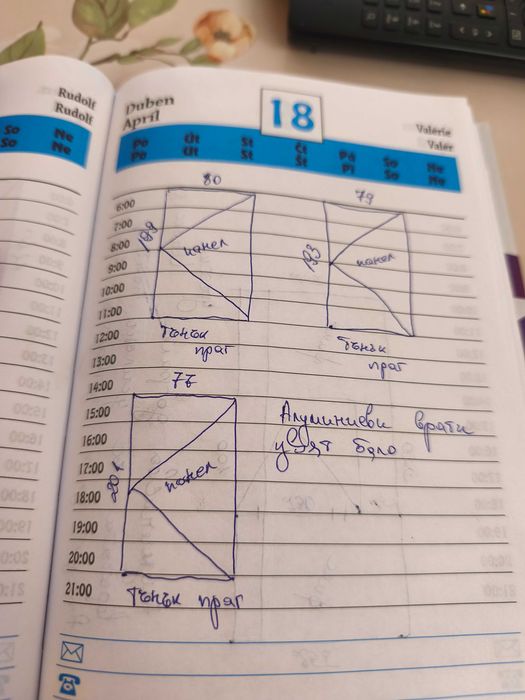 Rudolf
Rudolf
So Ne
So Ne
Duben
April
18
Valérie
Valér
Po Út St Čt Pá So Ne
Po Ut St Št Pi So Ne
6:00
7:00
8:00
9:00
10:00
11:00
12:00
13:00
14:00
15:00
16:00
17:00
18:00
19:00
20:00
21:00
80
панел
Тънък
праг
79
193
панел
Тънък
праг
панел
Тънък праг
Алуминиеви врати
цвят бяло